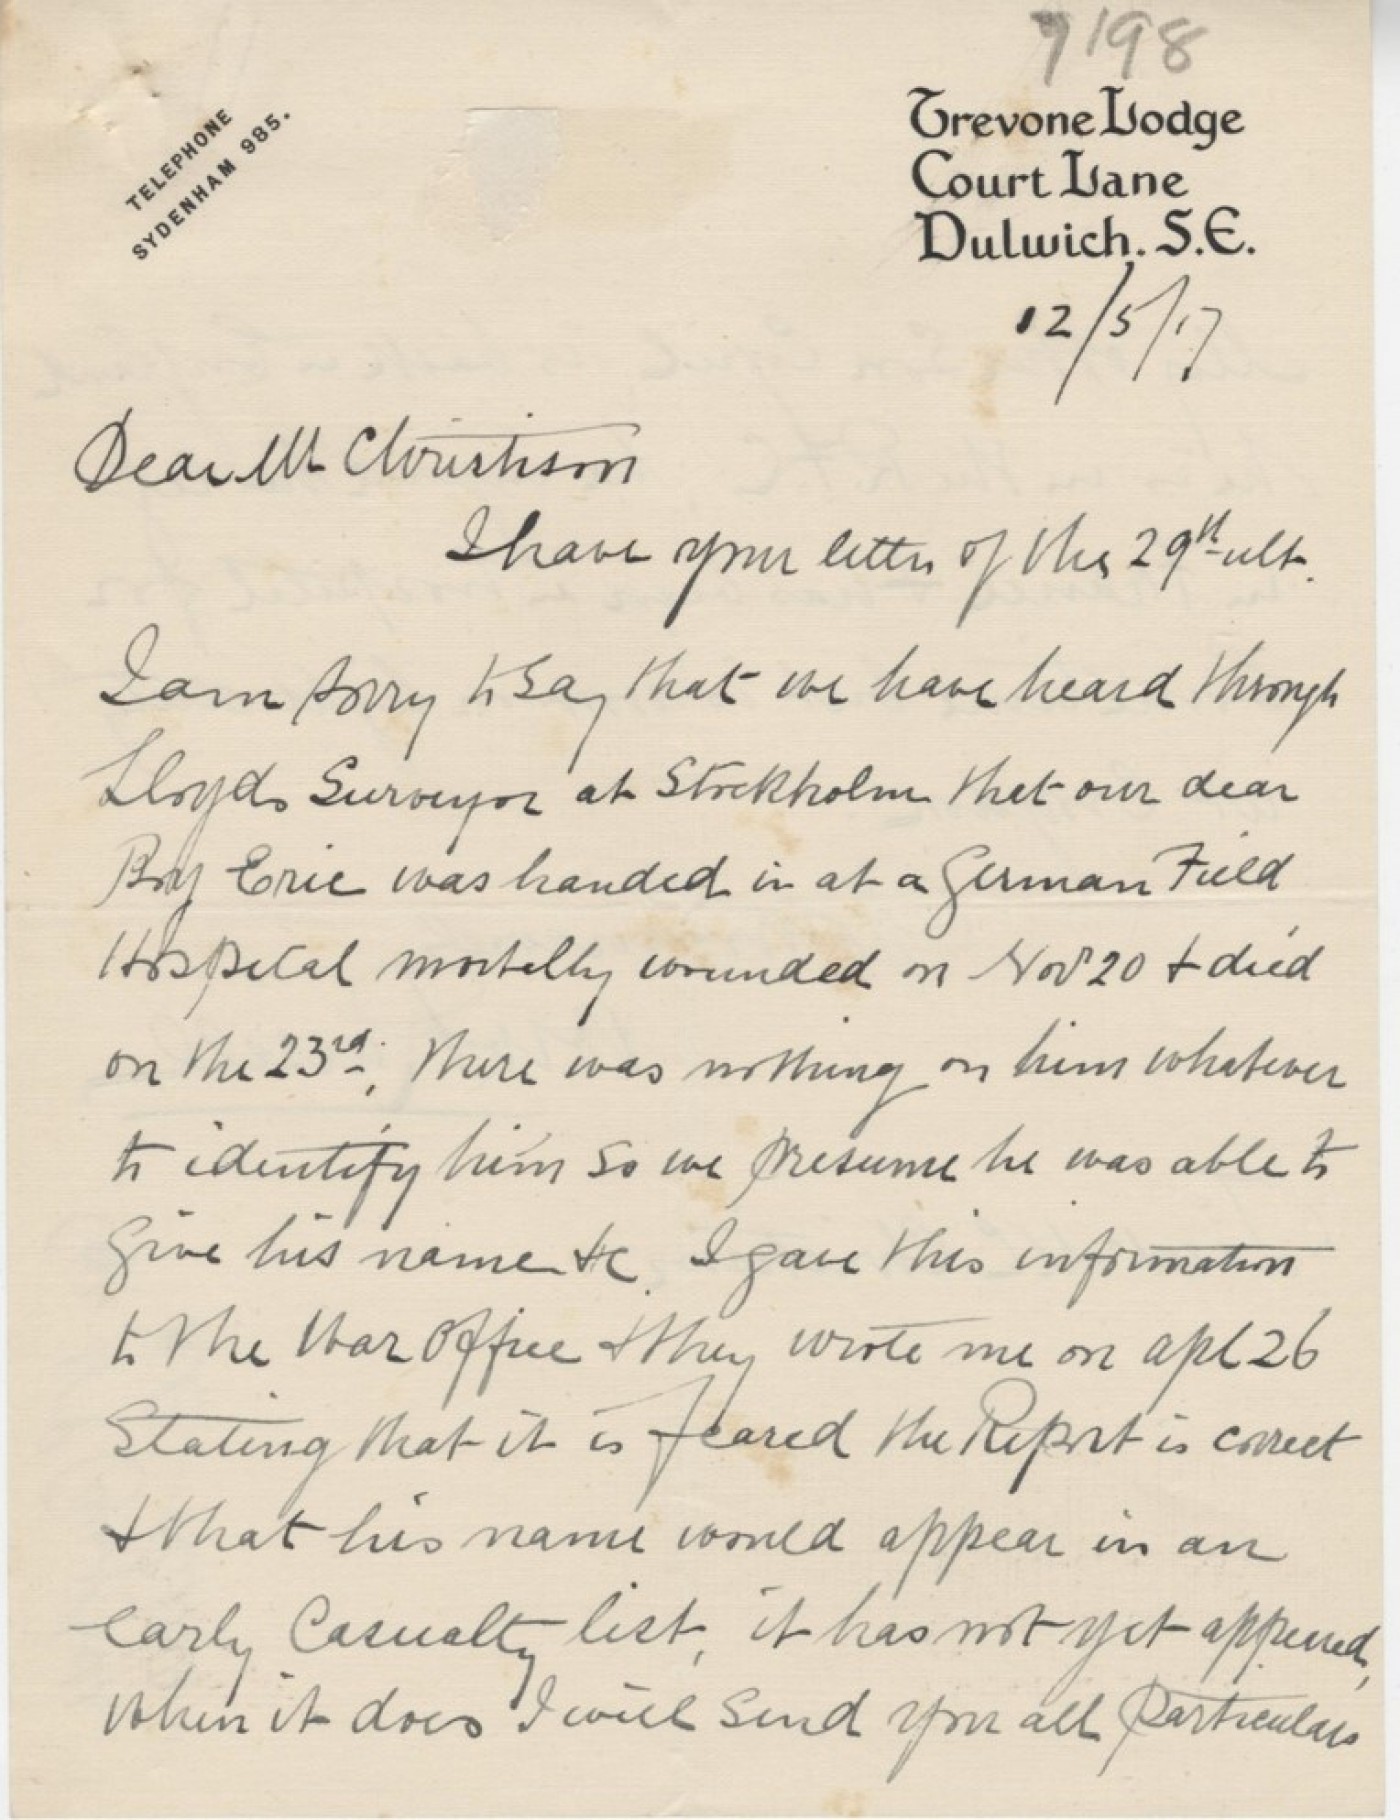 7198
TELEPHONE
SYDENHAM 985.
Trevone Lodge
Court Lane
Dulwich. S.E.
12/5/17
Dear Mr Christison
I have your letter of the 29th ult.
I am sorry to say that we have heard through
Lloyds Surveyor at Stockholm that our dear
Boy Eric was handed in at a German Field
Hospital mortally wounded on Nov 20 & died
on the 23rd, there was nothing on him whatever
to identify him so we presume he was able to
give his name &c. I gave this information
to the War Office & they wrote me on apl 26
Stating that it is feared the Report is correct
& that his name would appear in an
early Casualty list, it has not yet appeared,
when it does I will send you all particulars